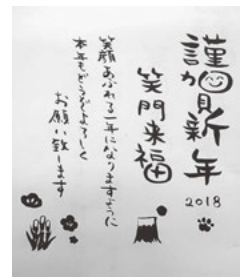 謹賀新年
2018
笑門来福
笑顔あふれる一年になりますように
本年もどうぞよろしく
お願い致します